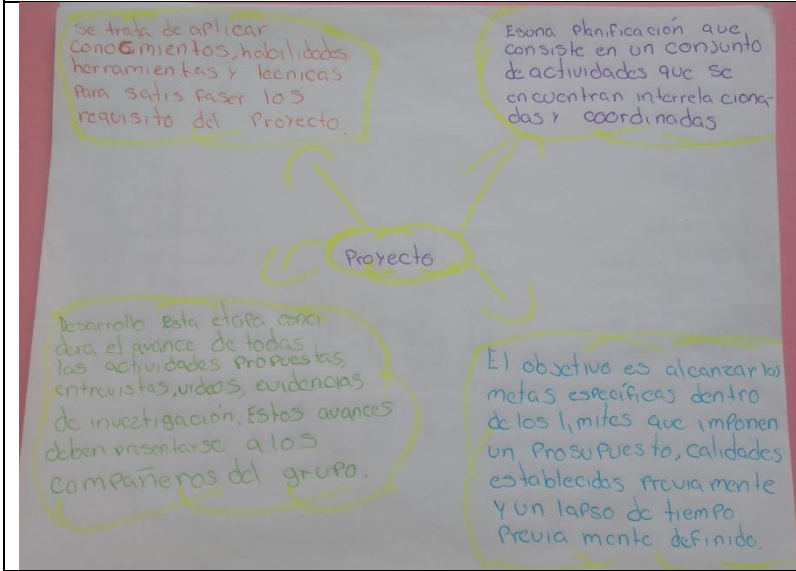 Se trata de aplicar
conocimientos, habilidades
herramientas y tecnicas
Para satis faser los
requisito del Proyecto.
Esuna planificación que
consiste en un conjunto
de actividades que se
encuentran interrela ciona-
das y coordinadas
Proyecto
Desarrollo Esta etapa conci
dera el avance de todas
las actividades Propuestas,
entrevistas, videos, evidencias
de inveztigación. Estos avances
deben presentarse a los
compañeros del grupo.
El objetivo es alcanzar las
metas específicas dentro
de los limites que imponen
un Prosupuesto, calidades
establecidas previa mente
y un lapso de tiempo
Previa mente definido.